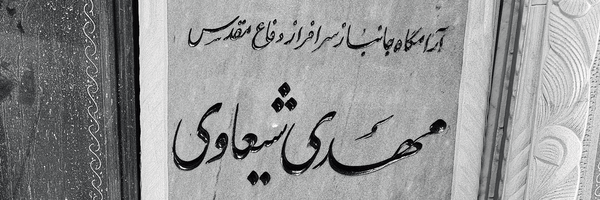 آرامگاه جانباز سرافراز دفاع مقدس
مهدی شیعاوی